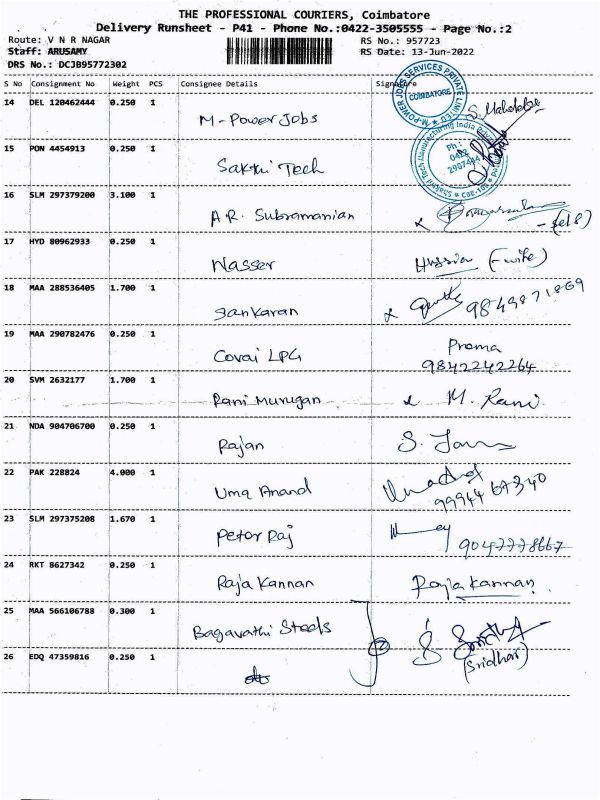 THE PROFESSIONAL COURIERS, Coimbatore
Delivery Runsheet - P41 - Phone No.:0422-3505555 - Page No.:2
Route: V N R NAGAR RS No.: 957723
Staff: ARUSAMY RS Date: 13-Jun-2022
DRS No.: DCJB95772302
S No Consignment No Weight PCS Consignee Details Signature
14 DEL 120462444 0.250 1
M-Power Jobs
M-POWER JOBS SERVICES PRIVATE LIMITED
COIMBATORE
15 PON 4454913 0.250 1
Sakthi Tech
Ph :
0422
2907444
16 SLM 297379200 3.100 1
A.R. Subramanian
-(self)
17 HYD 80962933 0.250 1
Nasser (-wife)
18 MAA 288536405 1.700 1
Sankaran 9843871869
19 MAA 290782476 0.250 1
Covai LPG Prema
9842242264
20 SVM 2632177 1.700 1
Rani Murugan M. Rani
21 NDA 904706700 0.250 1
Rajan
22 PAK 228824 4.000 1
Uma Anand
99944 67340
23 SLM 297375208 1.670 1
Peter Raj
24 RKT 8627342 0.250 1
Raja Kannan Raja Kannan
25 MAA 566106788 0.300 1
Bagavathi Steels
(Sridhar)
26 EDQ 47359816 0.250 1